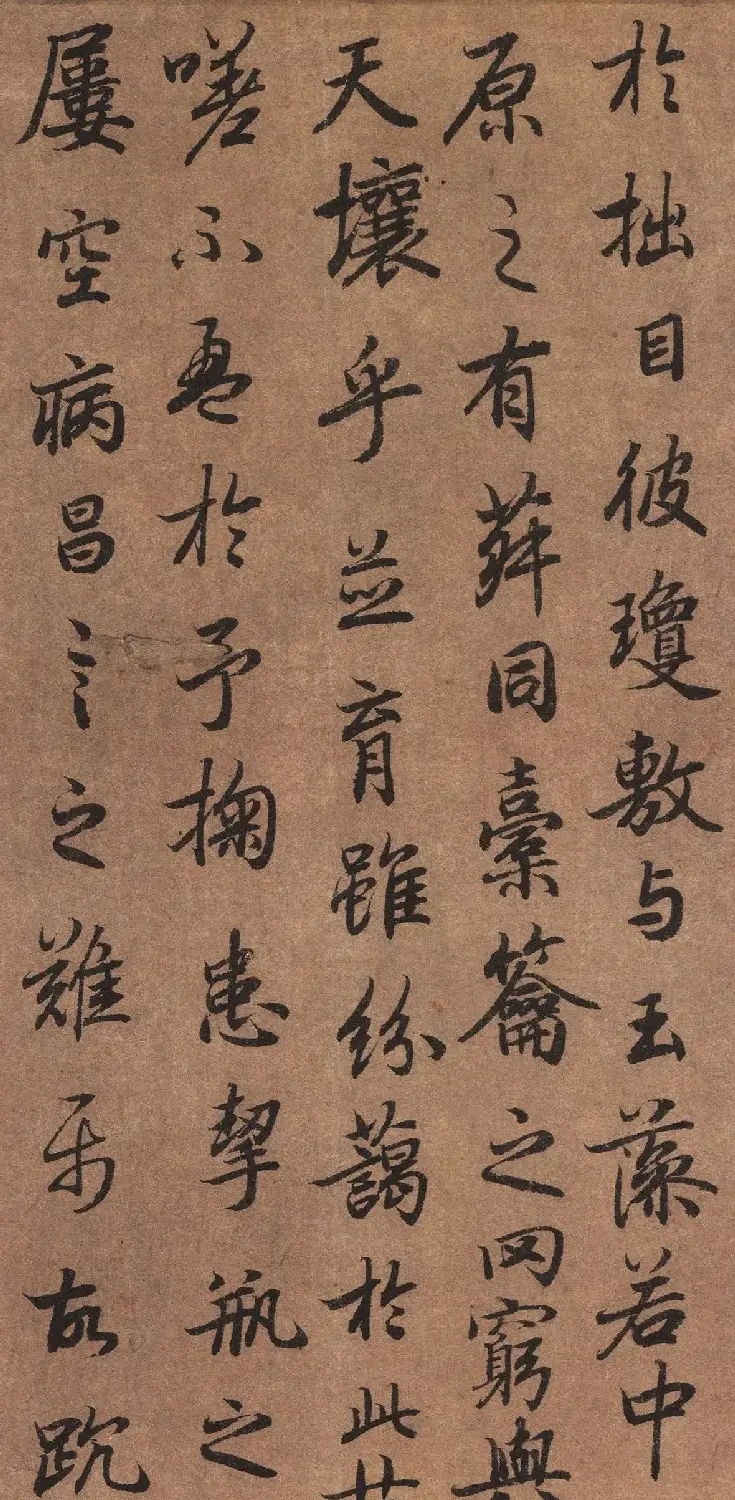 於拙目彼瓊敷与玉藻若中
原之有菽同橐籥之罔窮與
天壤乎並育雖紛藹於此世
嗟不盈於予掬患挈瓶之
屢空病昌言之難属故踸